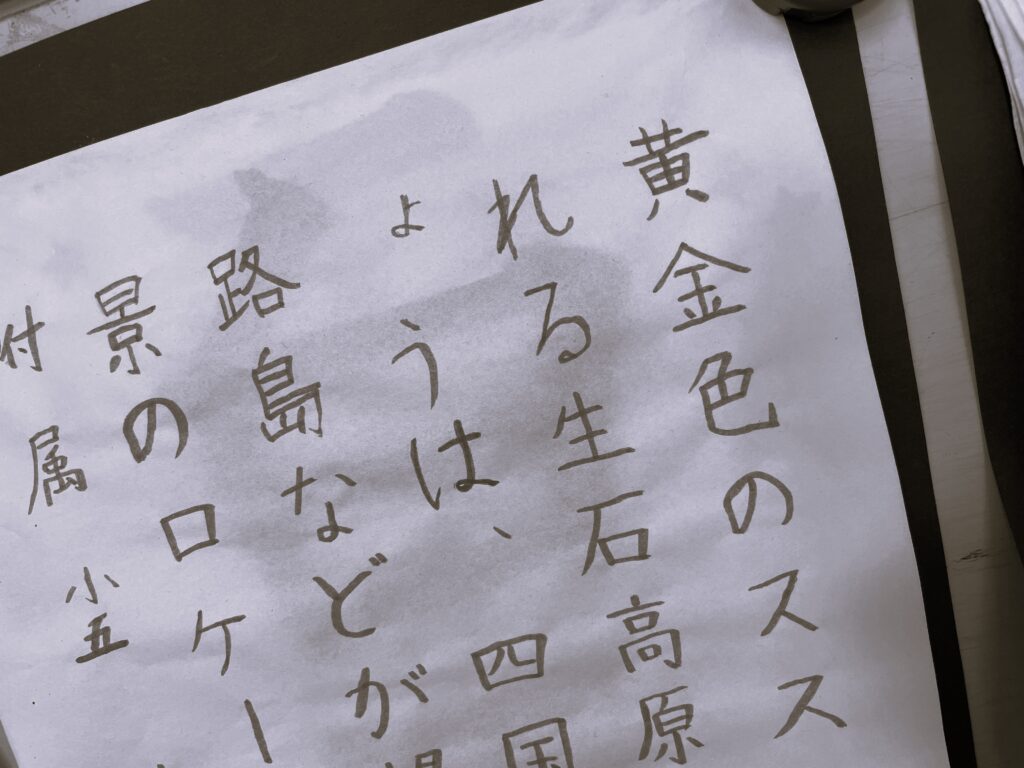 黄金色のスス
れる生石高原
ようは、四国
路島などが
景のロケー
付属小五